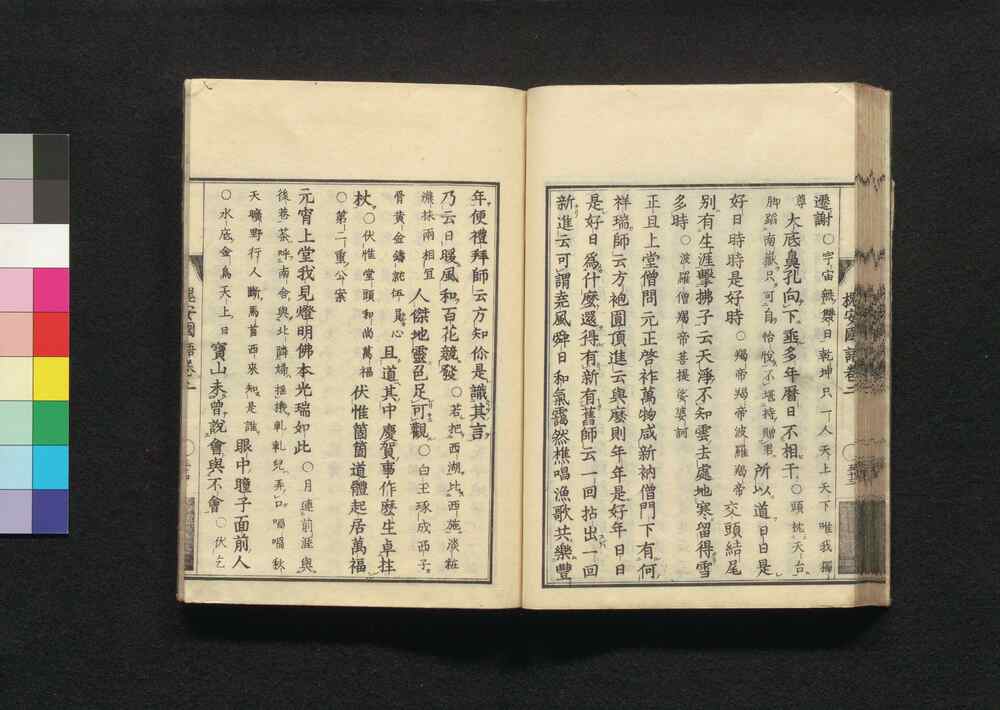 遷謝○宇宙無雙日乾坤只一人天上天下唯我獨
尊大底鼻孔向下垂多年曆日不相干○頭枕天台
脚蹈南嶽只可自怡悅不堪持贈君所以道日日是
好日時時是好時○羯帝羯帝波羅羯帝交頭結尾
別有生涯擊拂子云天淨不知雲去處地寒留得雪
多時○波羅僧羯帝菩提娑婆訶
正旦上堂僧問元正啓祚萬物咸新衲僧門下有何
祥瑞師云方袍圓頂進云與麼則年年是好年日日
是好日爲什麼還得有新有舊師云一回拈出一回
新進云可謂堯風舜日和氣靄然樵唱漁歌共樂豐
年便禮拜師云方知伱是識其言
乃云日暖風和百花競發○若把西湖比西施淡粧
濃抹兩相宜人傑地靈邑足可觀○白玉琢成西子
骨黃金鑄就伍員心且道其中慶賀事作麼生卓拄
杖○伏惟堂頭和尚萬福伏惟箇箇道體起居萬福
○第二重公案
元宵上堂我見燈明佛本光瑞如此○月連前涯與
後巷茶呼南舍與北隣嬌搖機軋軋兒弄口嗢嗢秋
天曠野行人斷馬首西來知是誰眼中瞳子面前人
○水底金烏天上日寶山未曾說會與不會○伏乞
槐安國語卷二
槐安國語卷二